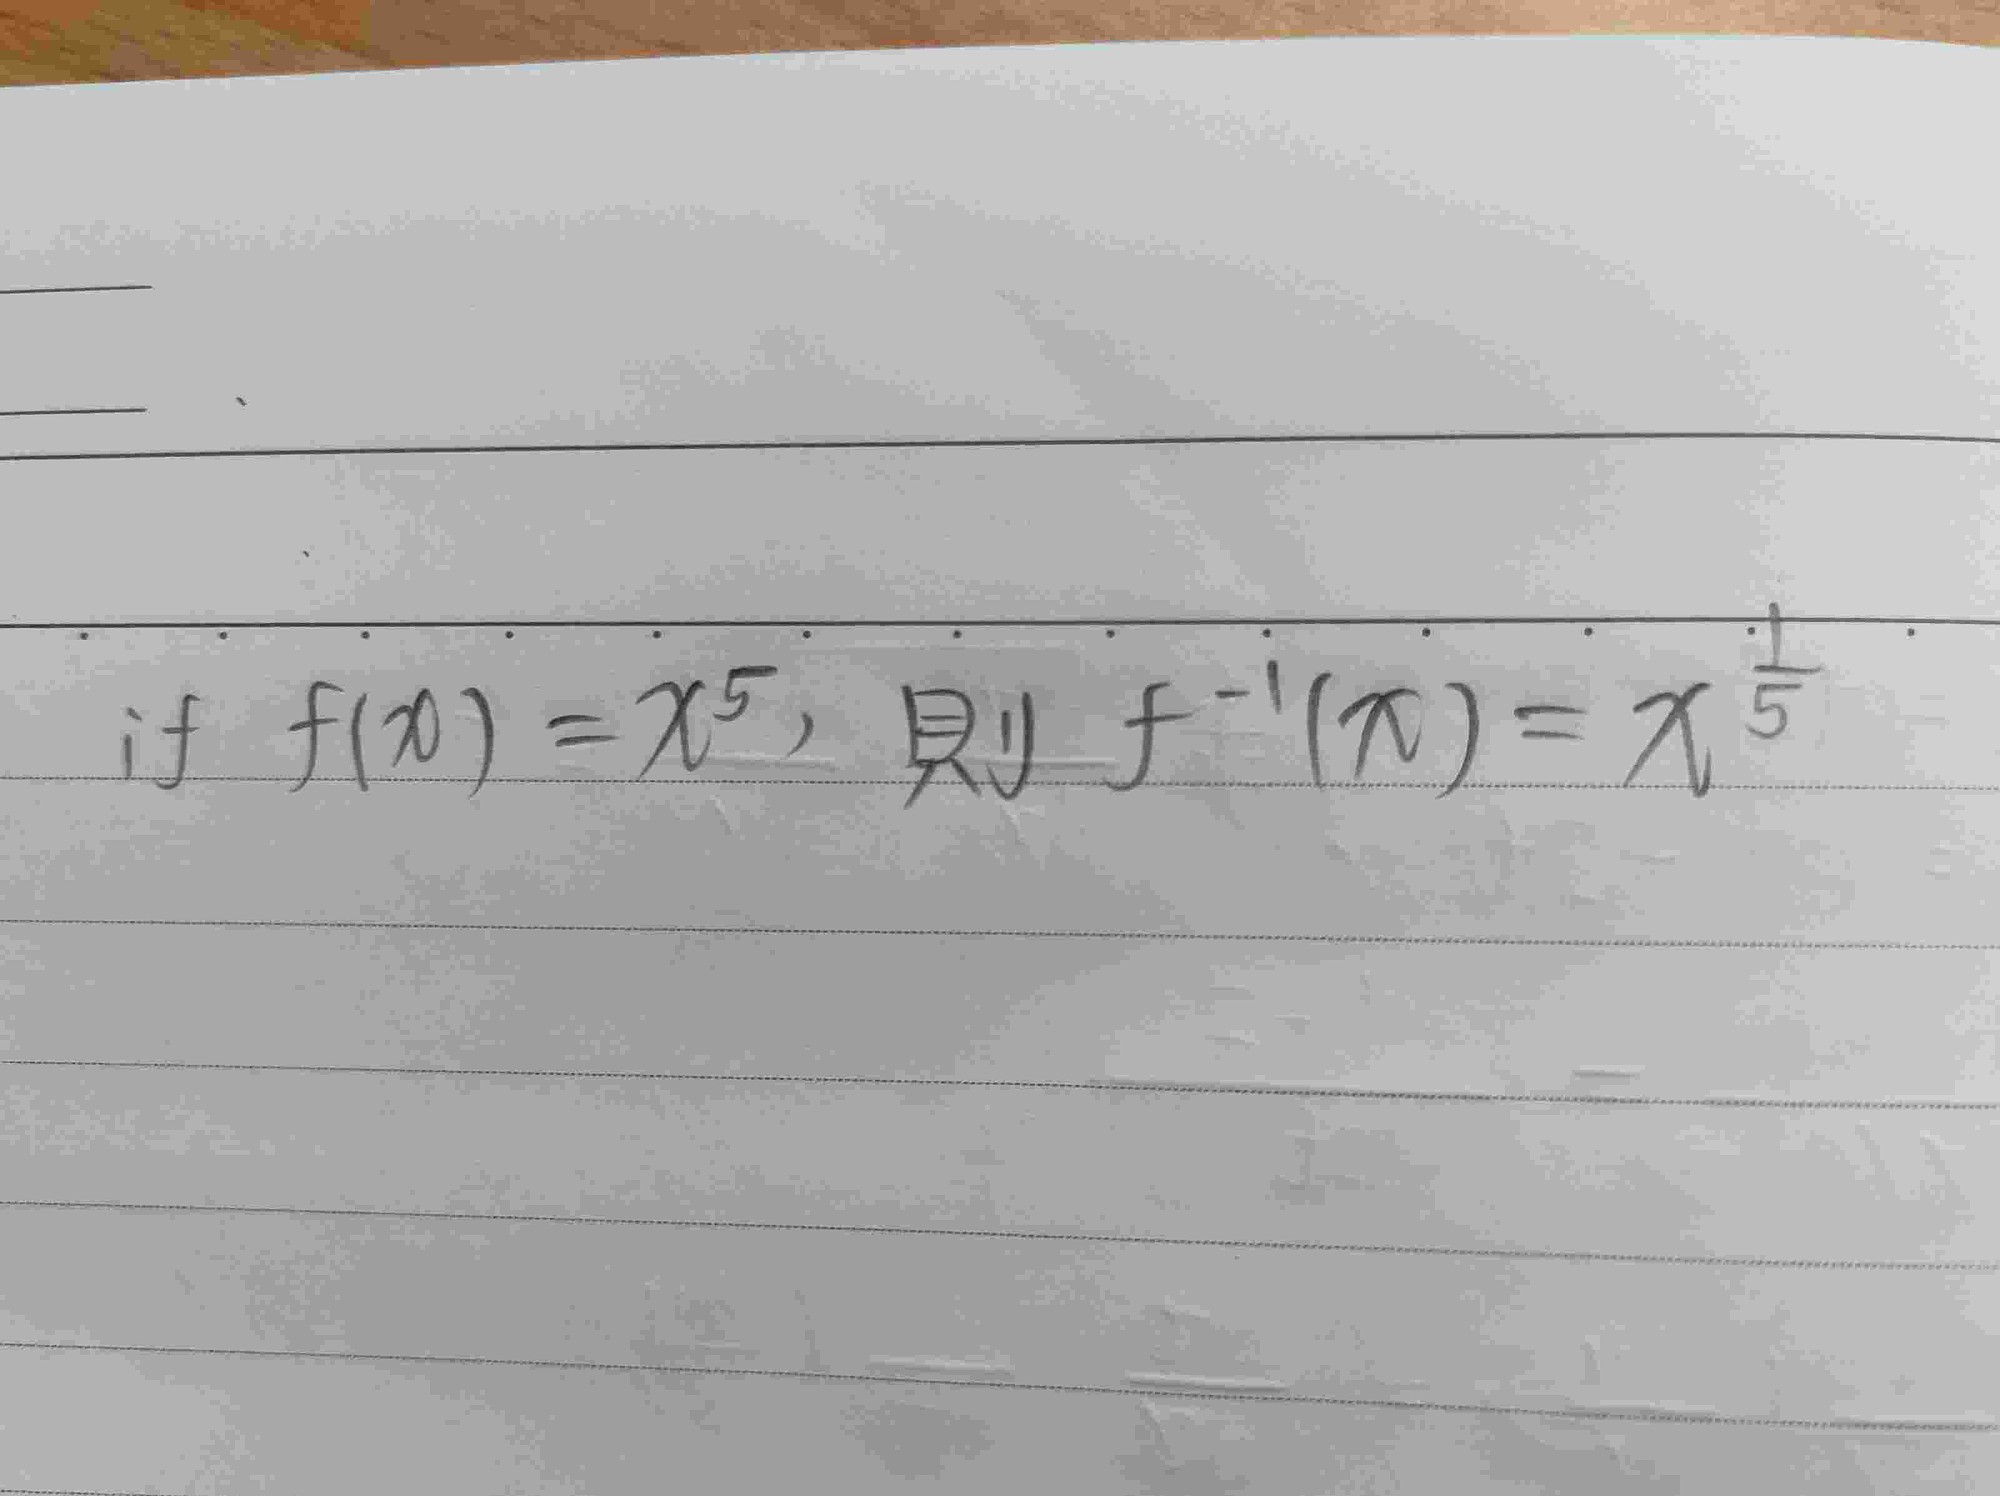 if f(x) = x⁵, 則 f⁻¹(x) = x^(1/5)